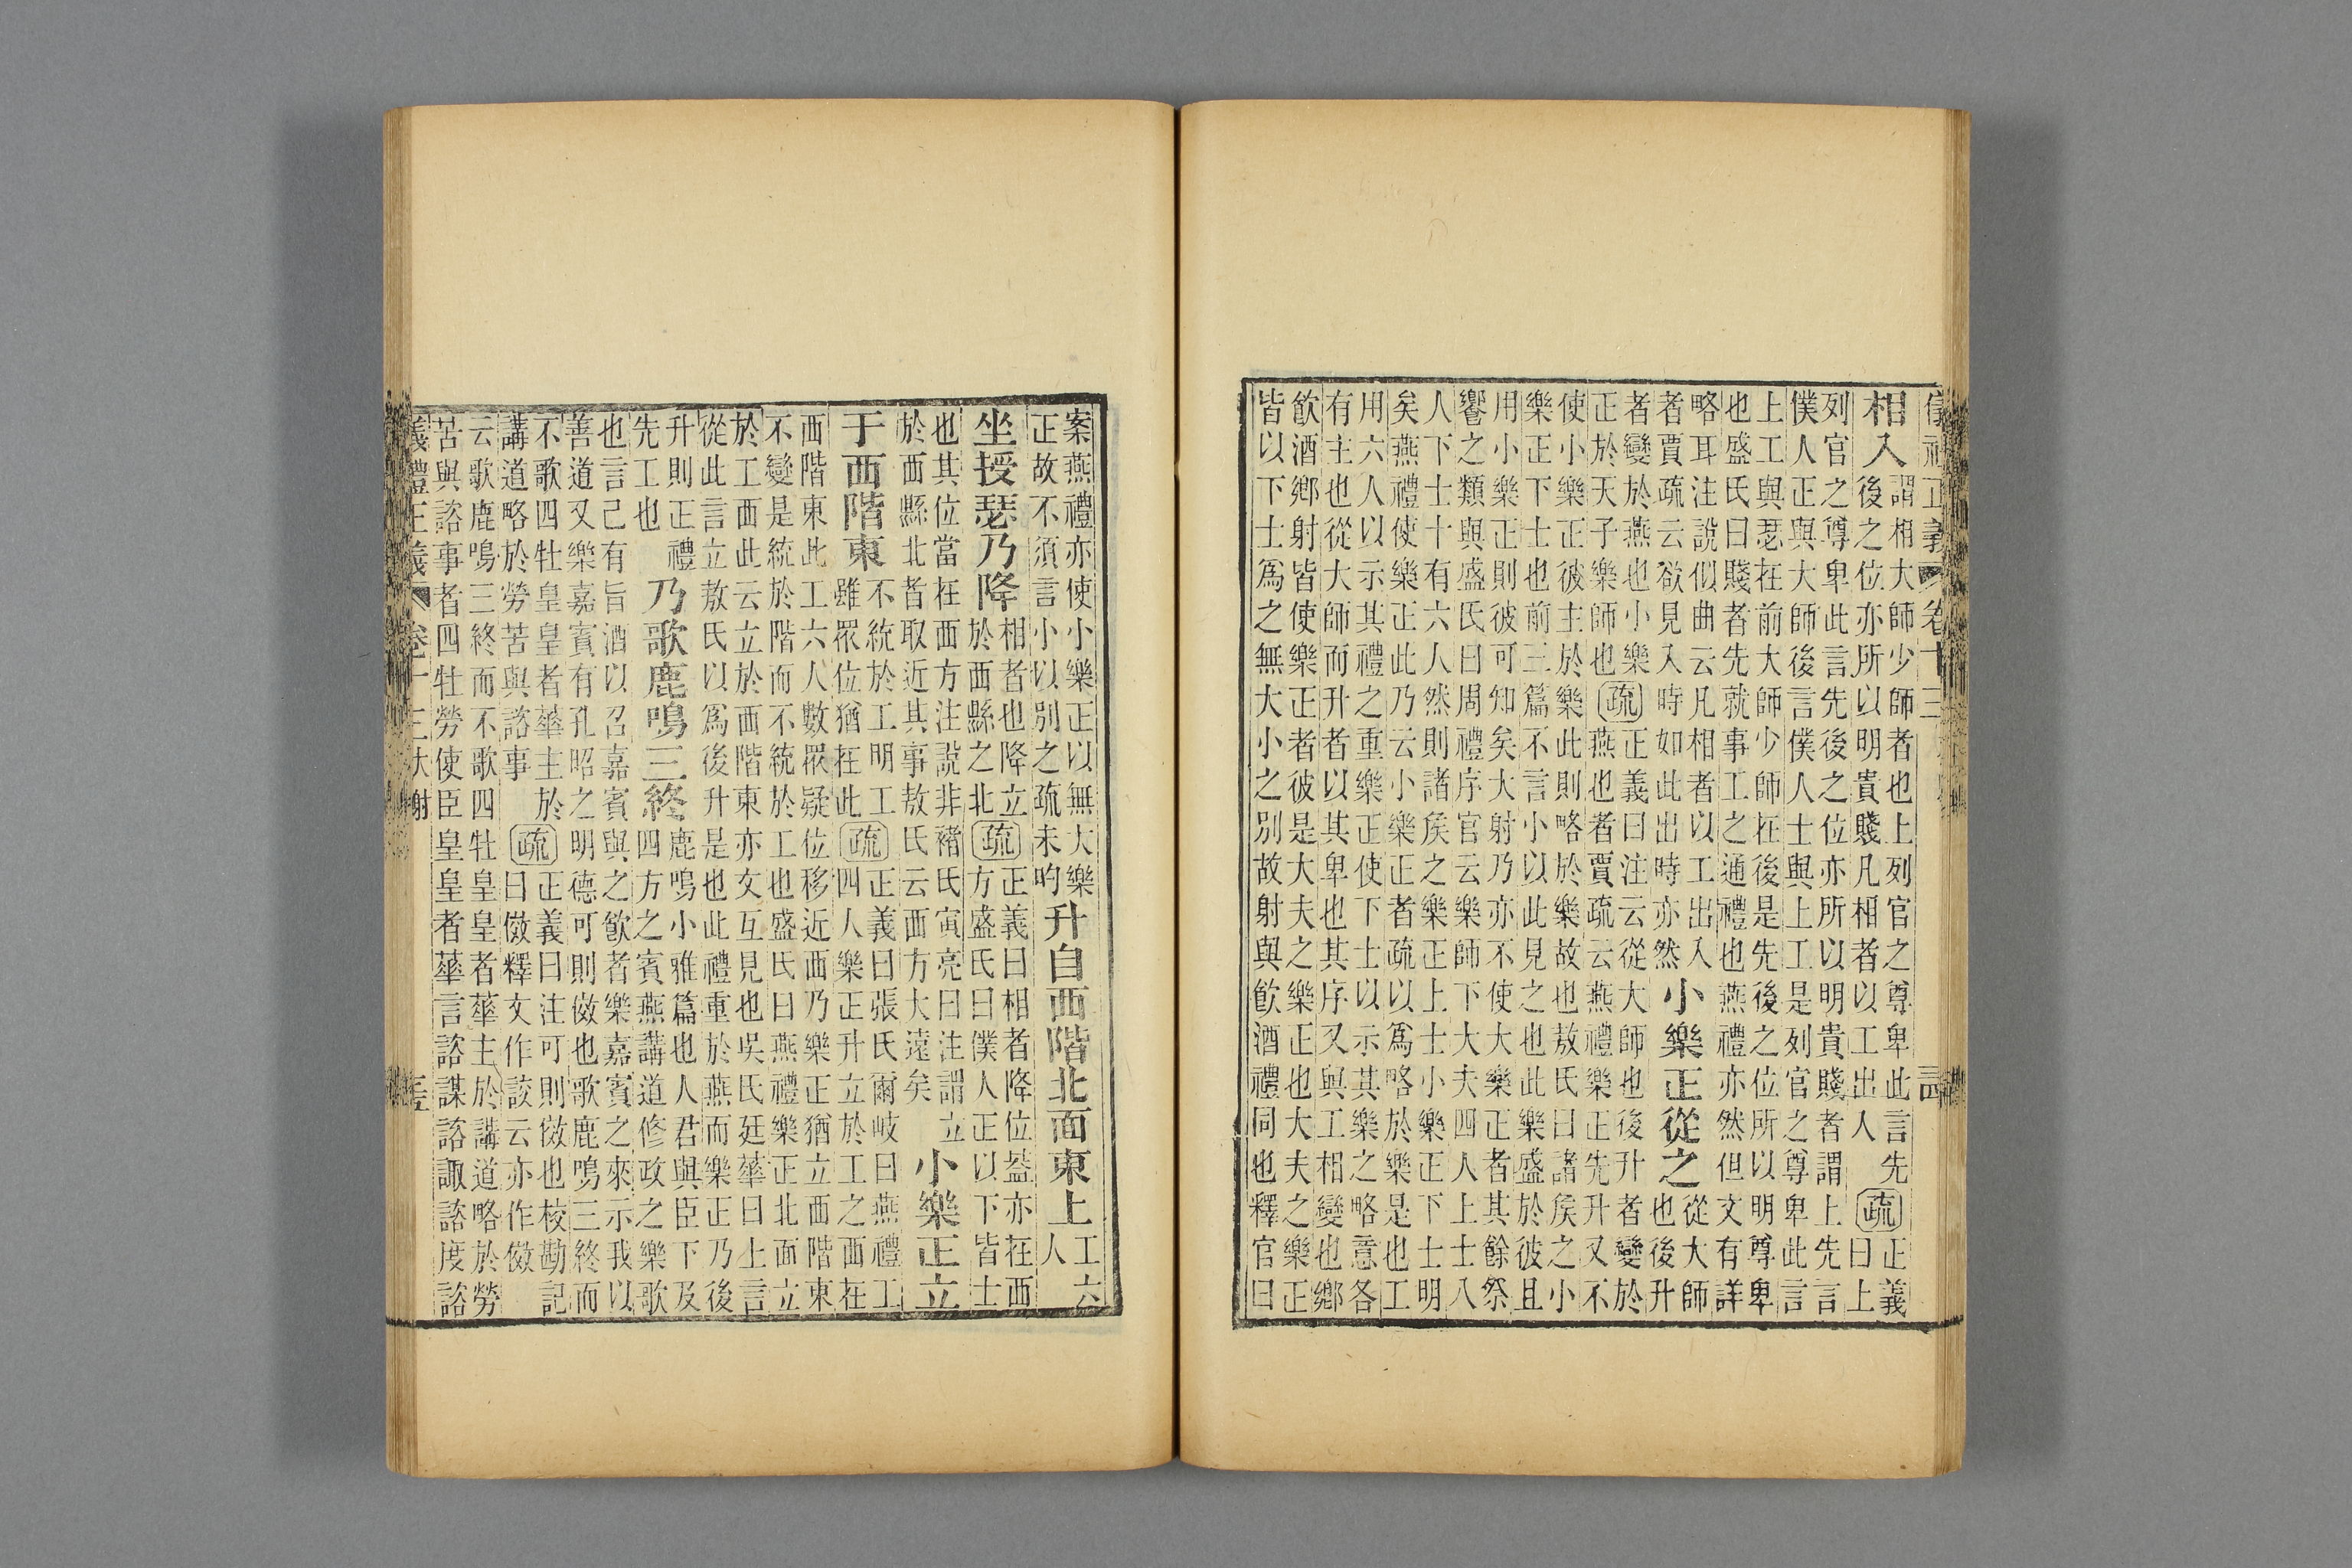 儀禮正義 卷十三
相入 謂相大師少師者也上列官之尊卑此言先
後之位亦所以明貴賤凡相者以工出人 疏 正義
曰上
列官之尊卑此言先後之位亦所以明貴賤者謂上先言
僕人正與大師後言僕人士與上工是列官之尊卑此言
上工與瑟在前大師少師在後是先後之位所以明尊卑
也盛氏曰賤者先就事工之通禮也燕禮亦然但文有詳
略耳注說似曲云凡相者以工出入
者賈疏云欲見入時如此出時亦然 小樂正從之 從大師
也後升
者變於燕也小樂
正於天子樂師也 疏 正義曰注云從大師也後升者變於
燕也者賈疏云燕禮樂正先升又不
使小樂正彼主於樂此則略於樂故也敖氏曰諸矦之小
樂正下士也前三篇不言小以此見之也此樂盛於彼且
用小樂正則彼可知矣大射乃亦不使大樂正者其餘祭
饗之類與盛氏曰周禮序官云樂師下大夫四人上士八
人下士十有六人然則諸矦之樂正上士小樂正下士明
矣燕禮使樂正此乃云小樂正者疏以爲略於樂是也工
用六人以示其禮之重樂正使下士以示其樂之略意各
有主也從大師而升者以其卑也其序又與工相變也鄉
飮酒鄉射皆使樂正者彼是大夫之樂正也大夫之樂正
皆以下士爲之無大小之別故射與飮酒禮同也釋官曰
案燕禮亦使小樂正以無大樂
正故不須言小以別之疏未昀 升自西階北面東上 工六
人
坐授瑟乃降 相者也降立
於西縣之北 疏 正義曰相者降位葢亦在西
方盛氏曰僕人正以下皆士
也其位當在西方注說非褚氏寅亮曰注謂立
於西縣北者取近其事敖氏云西方大遠矣 小樂正立
于西階東 不統於工明工
雖眾位猶在此 疏 正義曰張氏爾岐曰燕禮工
四人樂正升立於工之西在
西階東此工六人數眾疑位移近西乃樂正猶立西階東
不變是統於階而不統於工也盛氏曰燕禮樂正北面立
於工西此云立於西階東亦文互見也吳氏廷華曰上言
從此言立敖氏以爲後升是也此禮重於燕而樂正乃後
升則正禮
先工也 乃歌鹿鳴三終 鹿鳴小雅篇也人君與臣下及
四方之賓燕講道修政之樂歌
也言己有旨酒以召嘉賓與之飮者樂嘉賓之來示我以
善道又樂嘉賓有孔昭之明德可則傚也歌鹿鳴三終而
不歌四牡皇皇者華主於
講道略於勞苦與諮事 疏 正義曰注可則傚也校勘記
曰傚釋文作詨云亦作傚
云歌鹿鳴三終而不歌四牡皇皇者華主於講道略於勞
苦與諮事者四牡勞使臣皇皇者華言諮謀諮諏諮度諮
儀禮正義 卷十三大射 三五